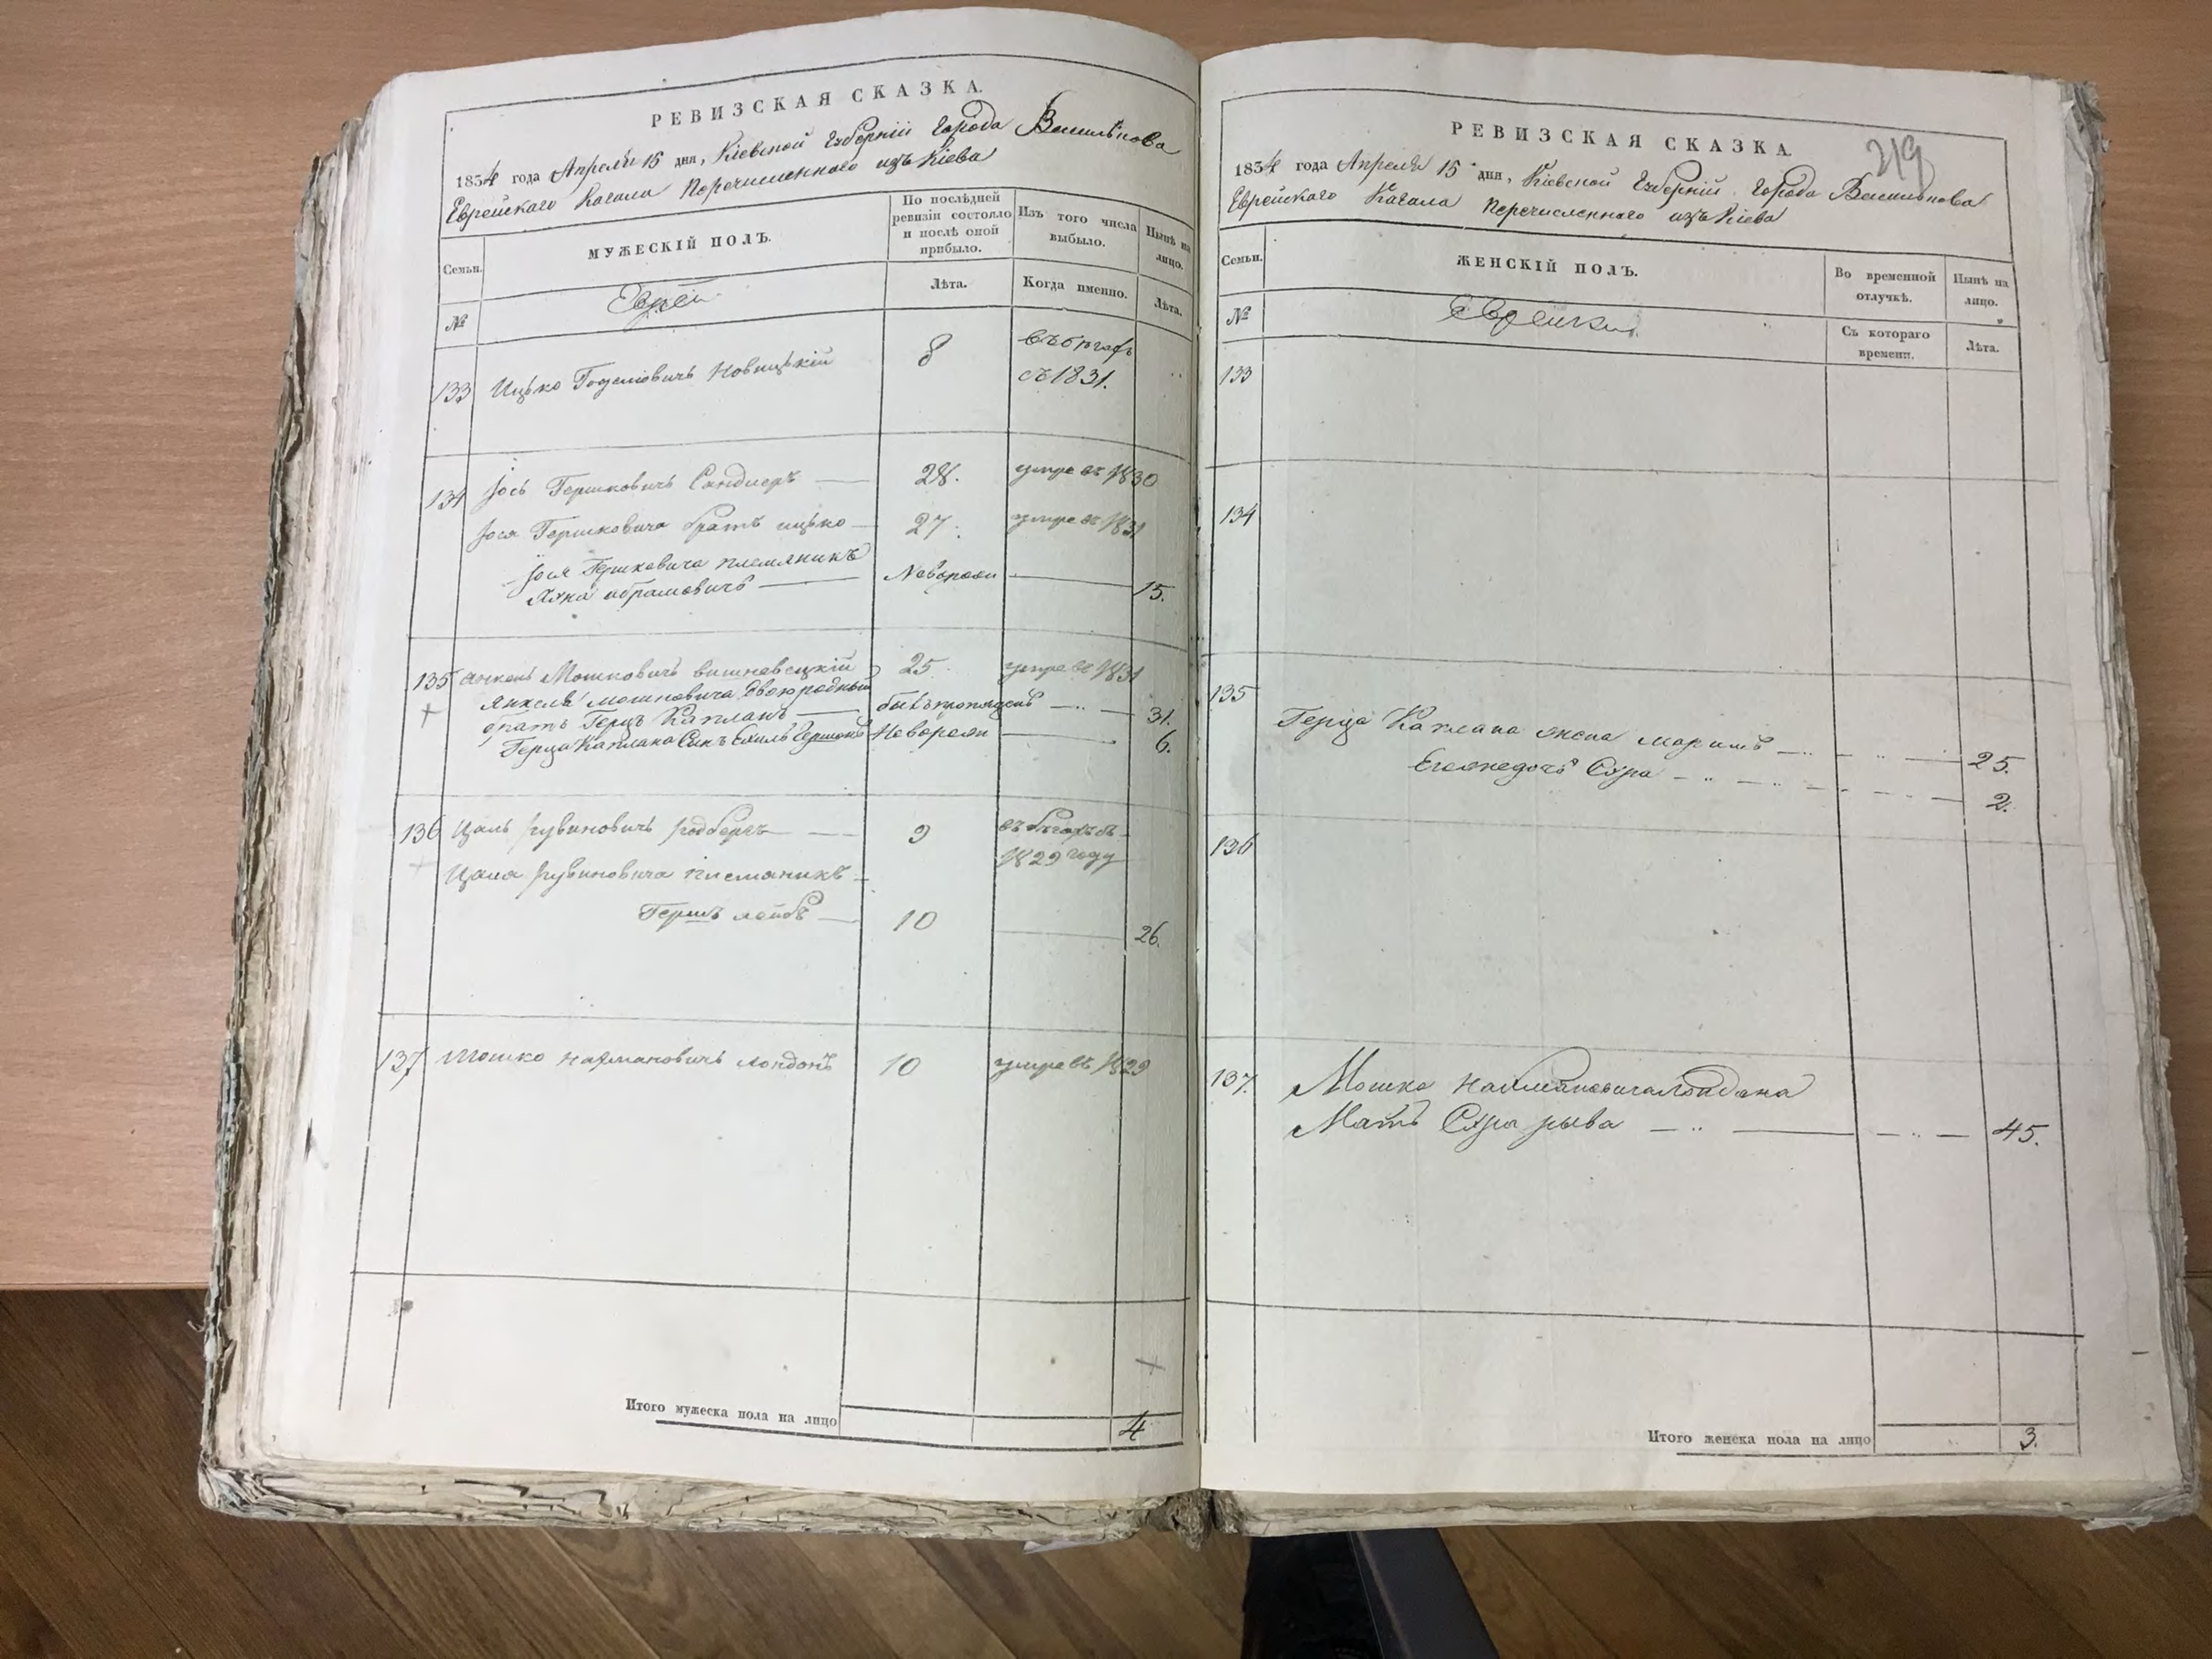 РЕВИЗСКАЯ СКАЗКА.
1834 года Апреля 15 дня, Кіевской Губерніи Города Василькова
Еврейскаго Кагала Перечисленнаго изъ Кіева
Семьи.
МУЖЕСКІЙ ПОЛЪ.
По послѣдней ревизіи состояло и послѣ оной прибыло.
Изъ того числа выбыло.
Нынѣ на лицо.
№
Евреи
Лѣта.
Когда именно.
Лѣта.
133 Ицько Новицькій 8 въ бѣгахъ
съ 1831.
134 Іось Гершковичъ Сандлеръ 28. умре въ 1830
Іося Гершковича братъ ицько 27. умре въ 1831
Іося Гершковича племяникъ
абрамовичъ Невороли 15.
135 Янкель Мошковичъ вишневецкій 25. умре въ 1831
Янкеля мошковича двоюродный
братъ Герцъ Капланъ бывъ пропущенъ 31.
Герца Каплана Сынъ Невороли 6.
136 Цаль рувиновичъ родбергъ 9 въ бѣгахъ въ
1829 году
Цаля рувиновича племяникъ
Гершъ лейбъ 10 26.
137 Мошко нахмановичъ лондонъ 10 умре въ 1829
Итого мужеска пола на лицо 4
219
РЕВИЗСКАЯ СКАЗКА.
1834 года Апреля 15 дня, Кіевской Губерніи Города Василькова
Еврейскаго Кагала Перечисленнаго изъ Кіева
Семьи.
ЖЕНСКІЙ ПОЛЪ.
Во временной отлучкѣ.
Нынѣ на лицо.
№
Еврейки
Съ котораго времени.
Лѣта.
133
134
135
Герца Каплана жена маримъ 25.
Егоже дочь Сура 2.
136
137. Мошка нахмановича лондона
Мать Сура рыва 45.
Итого женска пола на лицо 3.